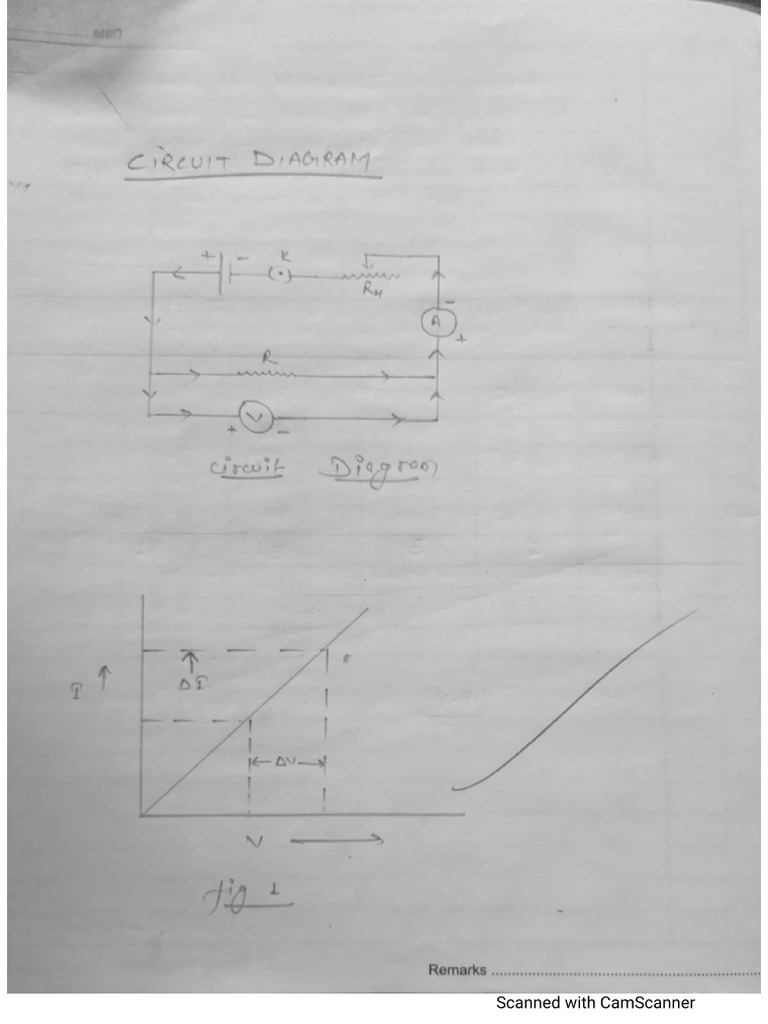 Date
CIRCUIT DIAGRAM
+ - K
RH
-
A
+
R
V
+ -
Circuit Diagram
I ↑ ΔI
ΔV
V
fig 1
Remarks
Scanned with CamScanner